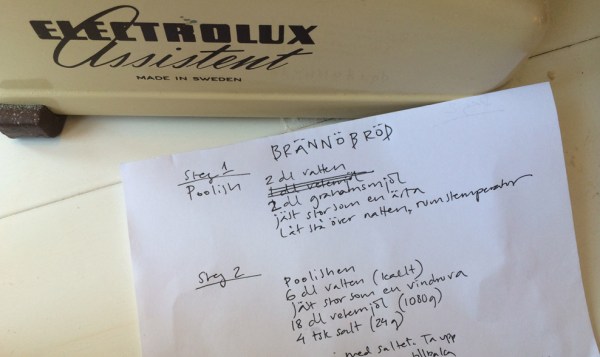 ELECTROLUX
Assistent
MADE IN SWEDEN
BRÄNNÖBRÖD
Steg 1
Poolish
2 dl vatten
1 dl vetemjöl
2 dl grahamsmjöl
jäst stor som en ärta
Låt stå över natten, rumstemperatur
Steg 2
Poolishen
6 dl vatten (kallt)
jäst stor som en vindruva
18 dl vetemjöl (1080g)
4 tsk salt (24g)
med saltet. Ta upp